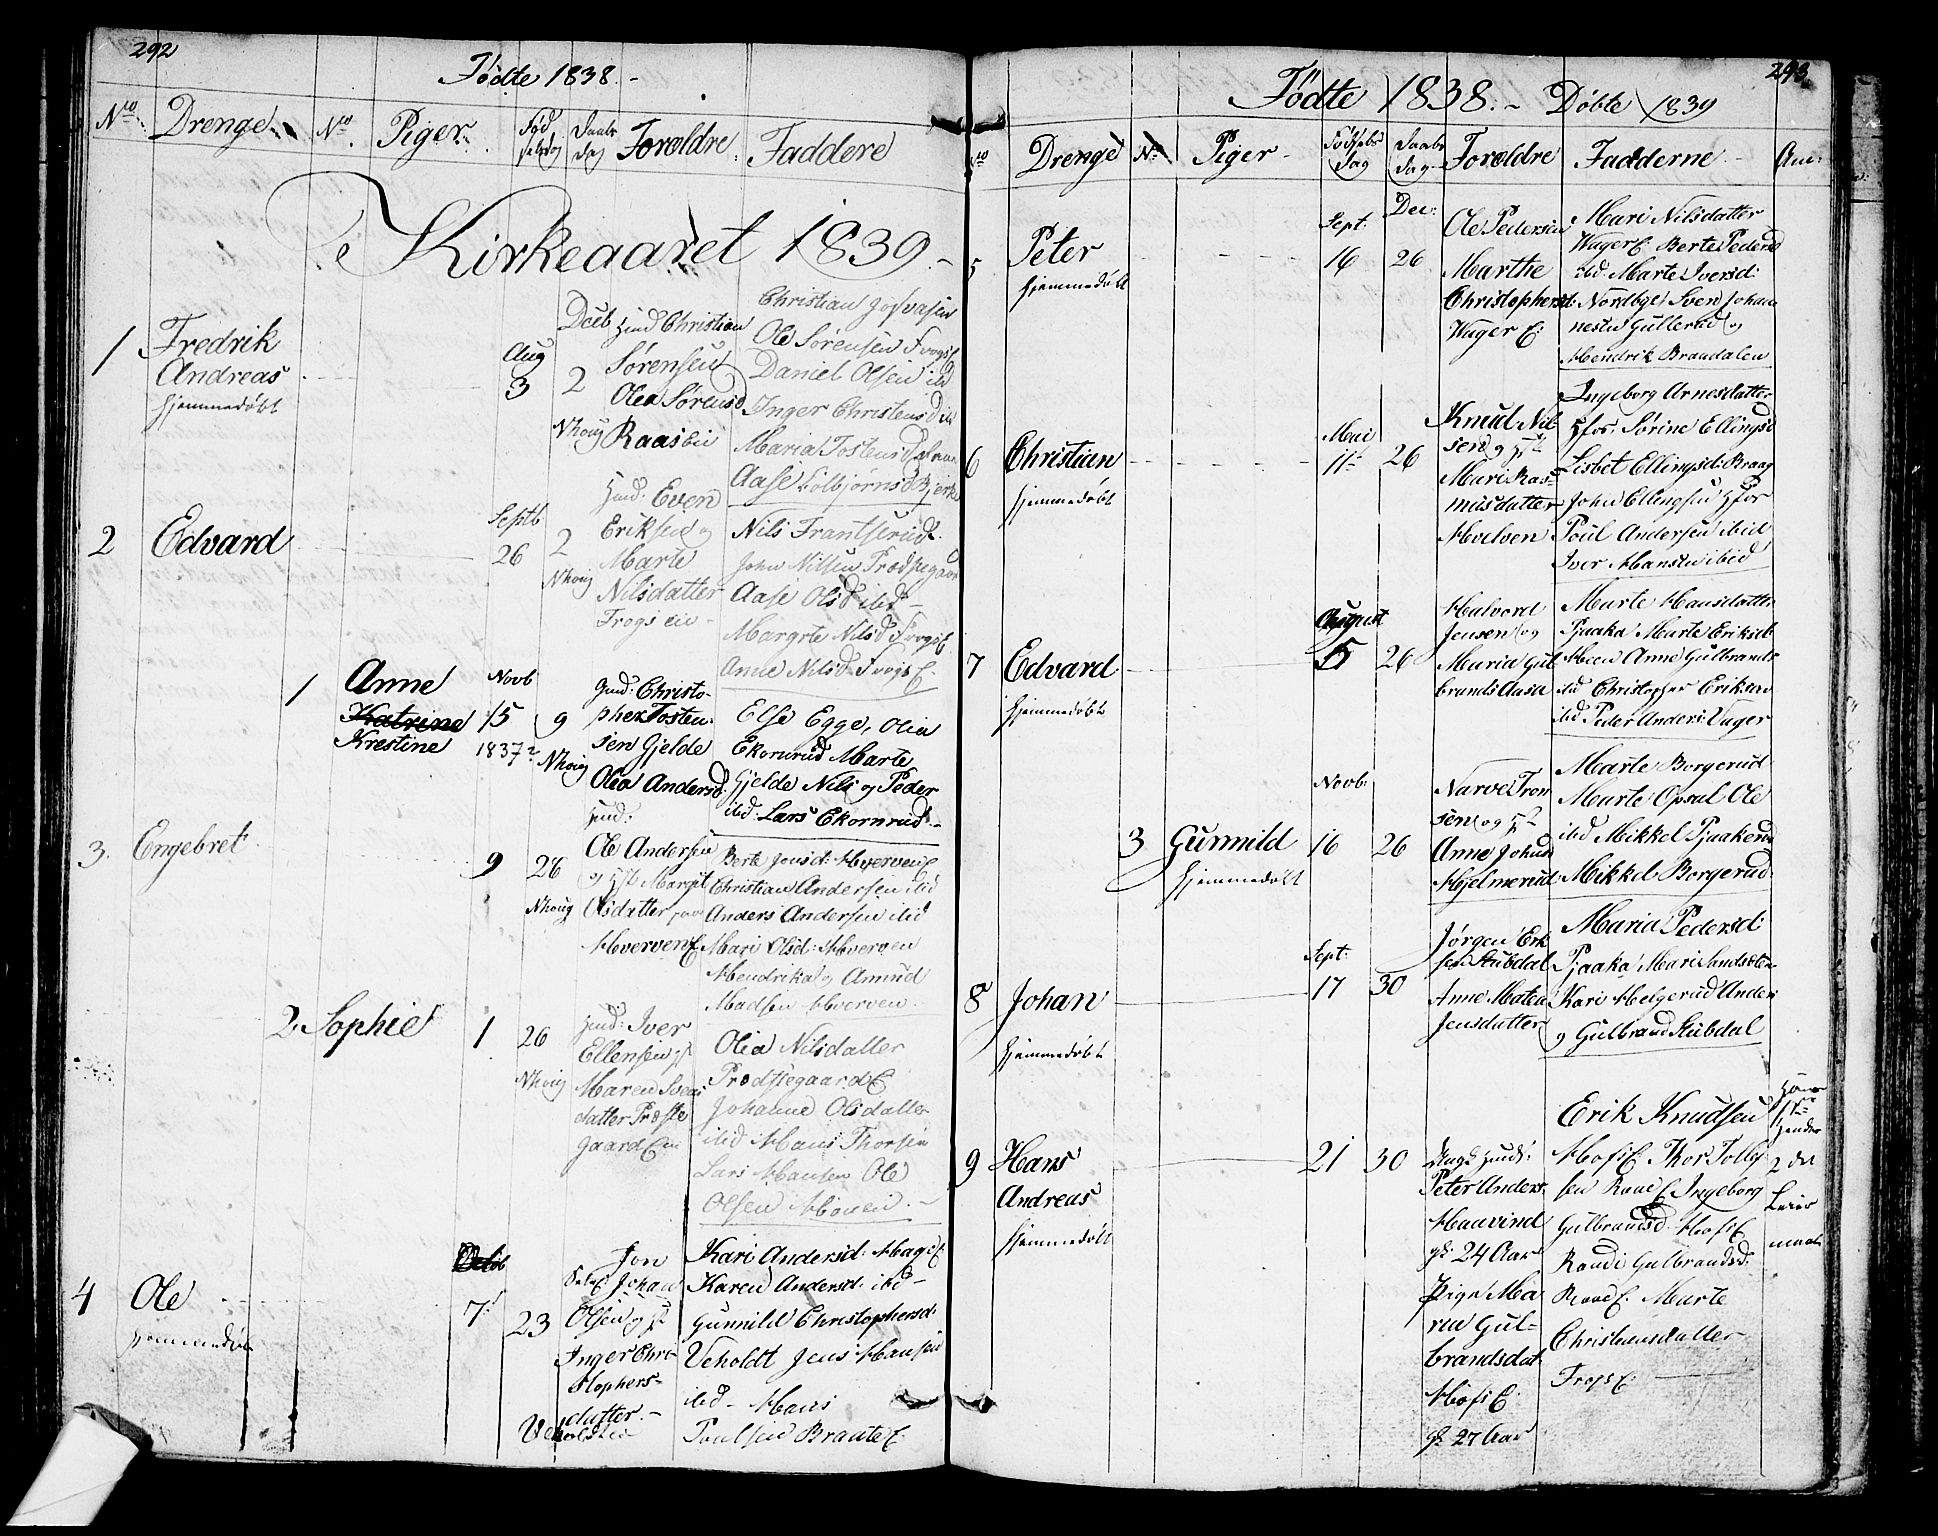 292
Fødte 1838.-
No. Drenge. No. Piger. Fødselsdag Daabsdag Forældre. Faddere
Kirkeaaret 1839.-
1 Fredrik
Andreas
hjemmedøbt
Aug
3
Decb
2
Nhoug
Huusm. Christian
Sørensen
Olea Sørensd
Raasbeie
Christian
Ole Sørensen Frogs E
Daniel Olsen ibid
Inger Christensd
Maria Tostensd
Aase Colbjørnsd Bjerke
2 Edvard
Septb
26
2
Nhoug
Huusm. Even
Eriksen og
Marte
Nilsdatter
Frogs eie -
Nils Frantserud.
John Nilsen Prodsegaard
Aase Olsd ibid -
Margrte Nilsd Frogs E
Anne Nilsd Frogs E.
1 Anne
Katrine
Krestine
Novb
15
1837
9
Nhoug
Gmd: Christo-
pher Tosten-
sen Gjelde
Olea Andersd
Else Egge, Olia
Ekornrud Marte
Gjelde Nils og Peder
ibid: Lars Ekornrud.-
3. Engebret
9
26
Nhoug
Huusm:
Ole Andersen
og Hst Margit
Olsdatter paa
Hverven E
Berte Jensd: Hverven E
Christian Andersen ibid
Anders Andersen ibid
Mari Olsd: Hverven
Hendrika og Amund
Madsen Hverven.
2. Sophie
1
26
Nhoug
Huusm: Iver
Ellensen og
Maren Svens
datter Præste
gaard Eiei
Olia Nilsdatter
Prodsegaard E
Johanne Olsdatter
ibid Hans Thorsen
Lars Hansen Ole
Olsen Hoven. -
4 Ole
hjemmedøbt
Octob
7
23
Jon
Johan
Olsen og Hst
Inger Chri
stophers-
datter.-
Veholdt
Kari Andersd: Hage E
Karen Andersd. ibid -
Gunnild Christophersd.
Veholdt Jens Hansen
ibid - Hans
Poulsen Braate E.
293.
Fødte 1838.- Døbte 1839
No Drenge No Piger - Fødselsdag Daabsdag Forældre Fadderne - Anm:
5 Peter
hjemmedøbt
Sept.
16
Dec:
26
Ole Pedersen
Marthe
Christophersd:
Wager E.
Mari Nilsdatter
Wager E. Berte Pedersd
ibid. Marte Iversd:
Nordbye Sven Johan
nesen Gullerud og
Hendrik Brandalen
6 Christian
hjemmedøbt
Mai
11
26
Knud Nil-
sen og Hst
Mari Ras-
musdatter
Halsen
Ingeborg Arnesdatter
Hfos, Sørine Ellingsd
Lisbet Ellingsd: Kraag
John Ellingsen Hfos
Poul Andersen ibid
Iver Hansen ibid
7 Edvard
hjemmedøbt
August
5
26
Halvord
Jensen og
Maria Gul
brands Aasa
Marte Hansdatter
Pjaaka Marte Eriksd
Meen Anne Gulbrands
ibid Christopher Eriksen
ibid Peder Anders: Vager
3 Gunnild
hjemmedøbt
Novb.
16
26
Narve Tron
sen og Hst
Anne Johns
Hjelmerud
Marte Borgerud
Marte Opsal Ole
ibid Mikkel Pjaakerud
Mikkel Borgerud.
8 Johan
hjemmedøbt
Sept.
17
30
Jørgen Erik
sen Stubdal
Anne Matea
Jensdatter
Maria Pedersd.
Pjaaka Mari Sandsæter
Kari Helgerud Anders
og Gulbrand Stubdal
9 Hans
Andreas
hjemmedøbt
21
30
Ungk
Peter Anders:
Hauvind
gl. 24 Aar
Pige Ma
ren Gul-
brandsdat.
Hofs E.
gl. 27 Aar
Erik Knudsen
Hofs E. Thor Tollef
sen Raae E. Ingeborg
Gulbrandsd. Hofs E.
Randi Gulbrandsd.
Raae E. Marte
Christiansdatter
Frogs E.
Hans
1ste
2det
Leier
maal